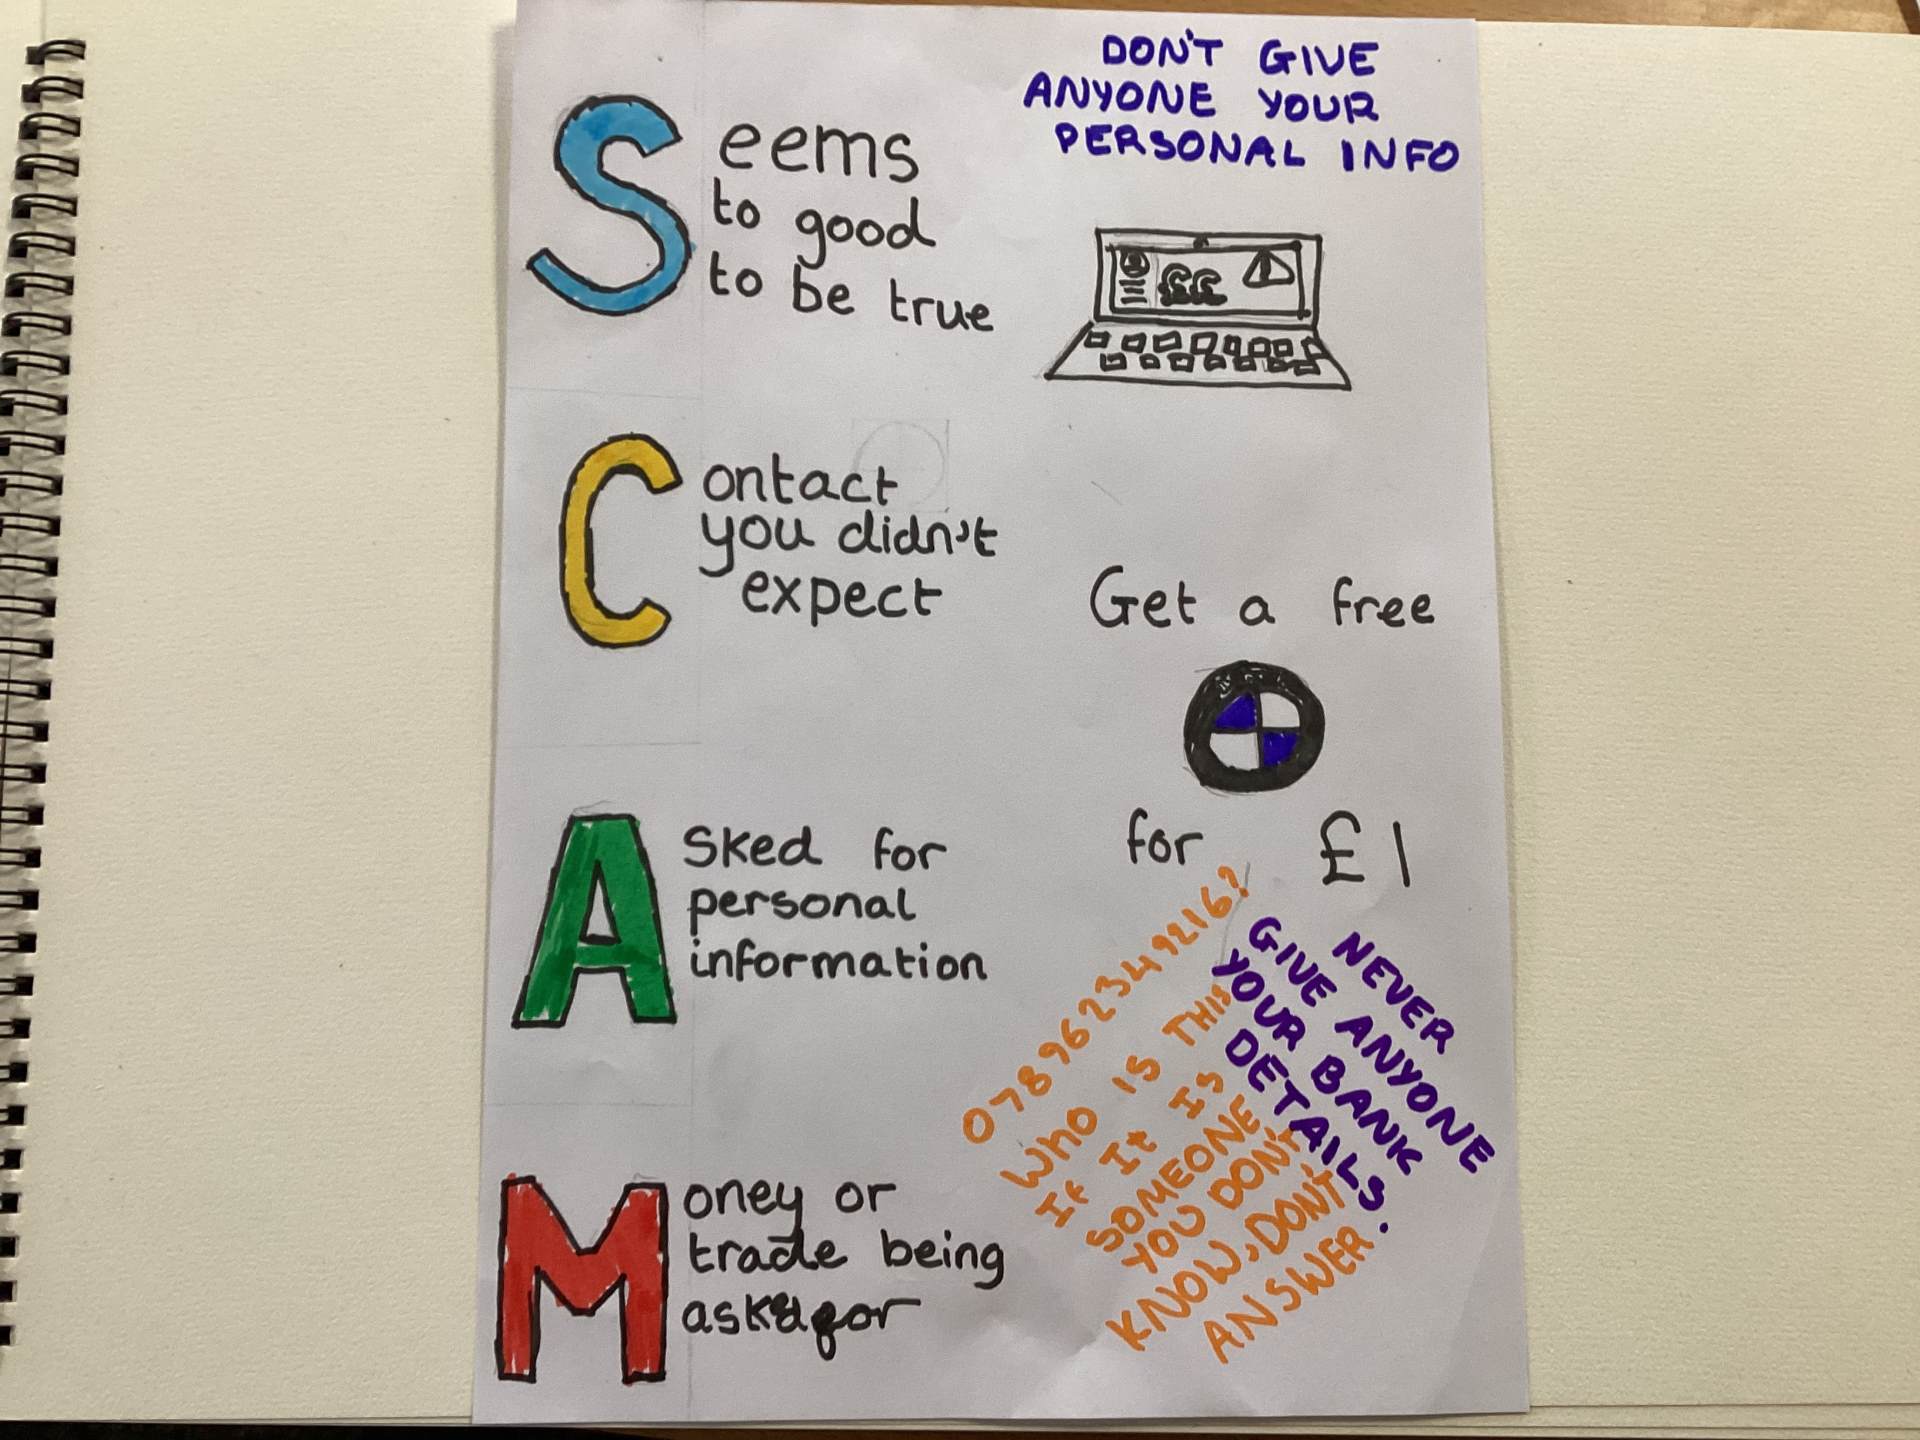 DON'T GIVE
ANYONE YOUR
PERSONAL INFO
Seems
to good
to be true
££
Contact
you didn't
expect
Get a free
for £1
Asked for
personal
information
078962349216?
WHO IS THIS
If It IS
SOMEONE
YOU DON'T
KNOW, DON'T
ANSWER.
NEVER
GIVE ANYONE
YOUR BANK
DETAILS.
Money or
trade being
asked for